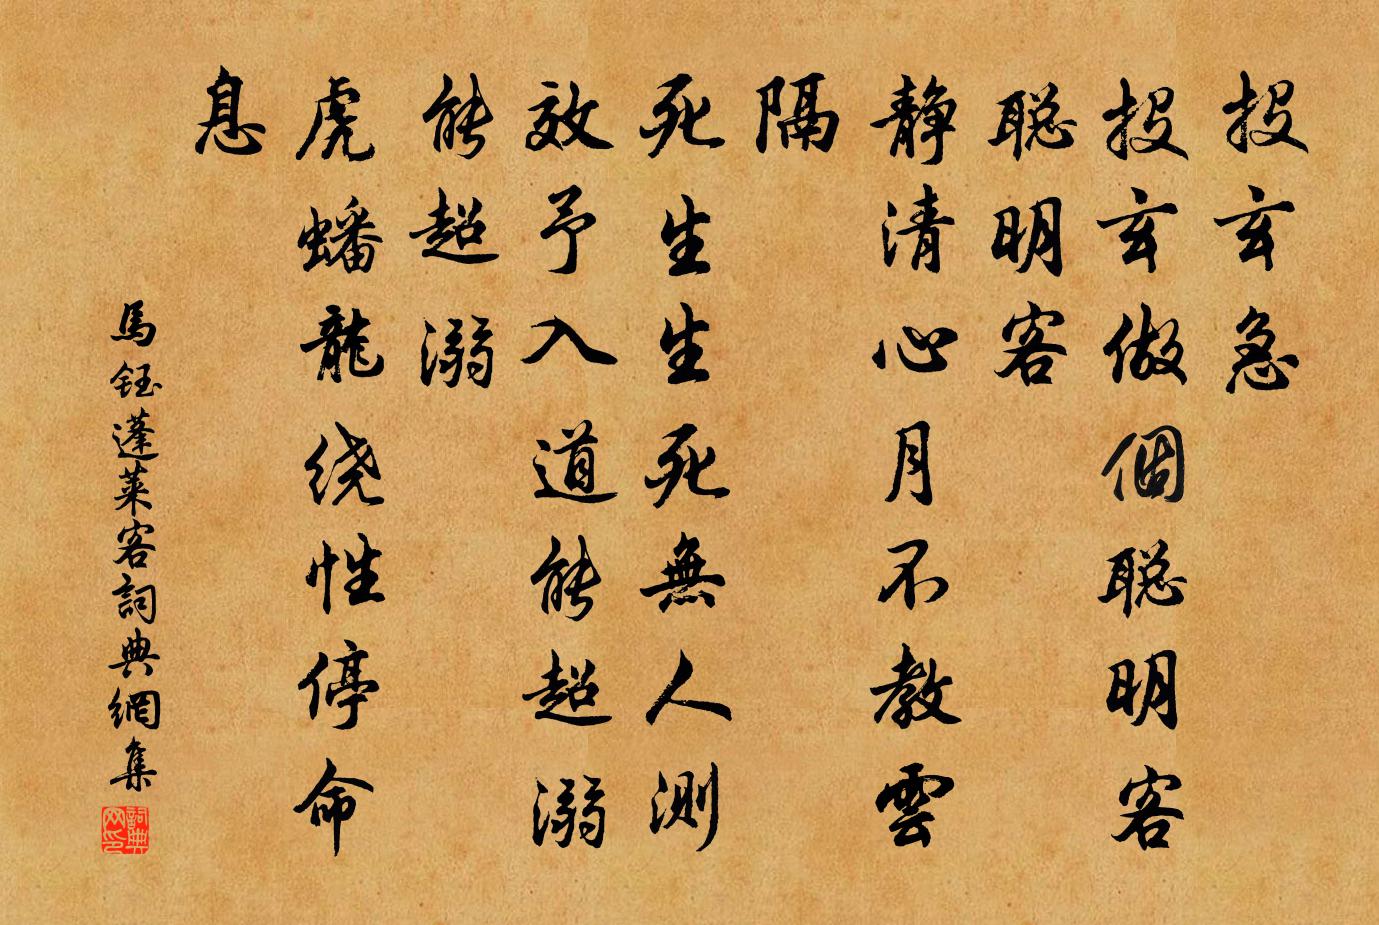 投玄急
投玄做個聪明客
聪明客
靜清心月不教雲
隔
死生生死無人測
效予入道能超溺
能超溺
虎蟠龍绕性停命
息
馬鈺蓬莱客詞典網集
詞典
网印